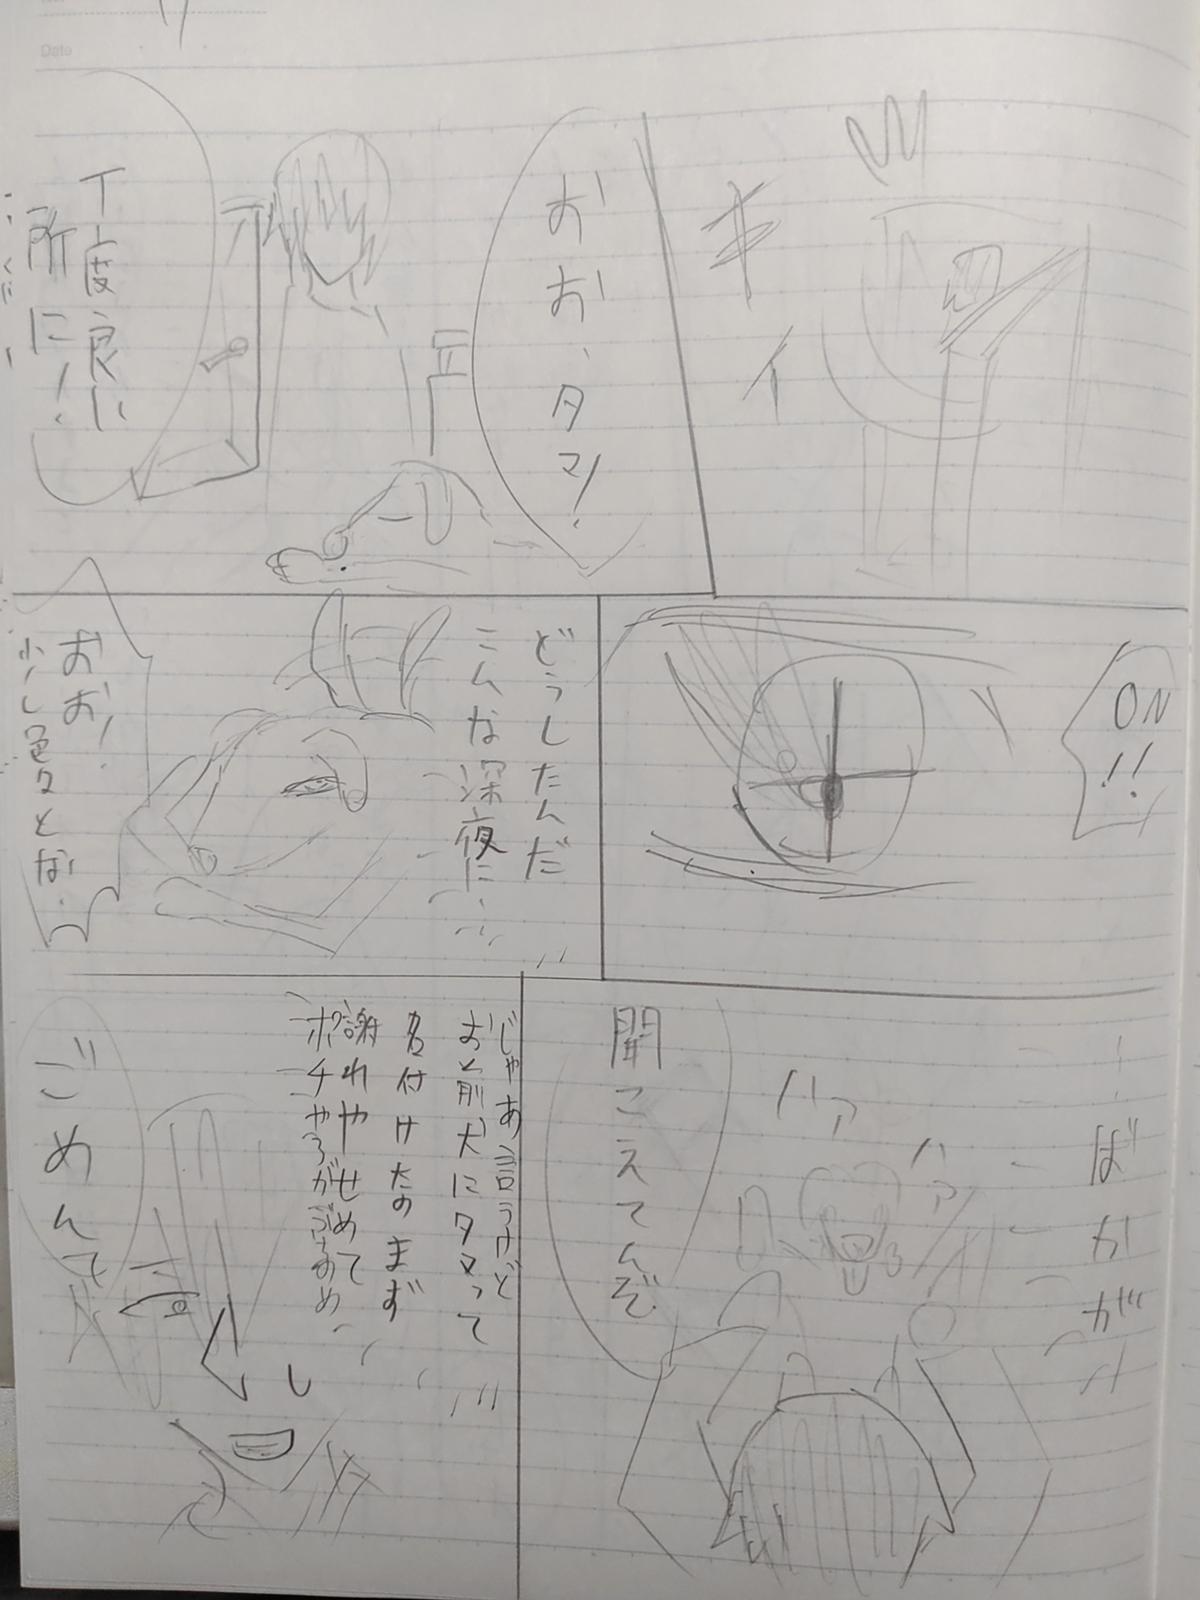 Date
キイ
おお、タマ!
丁度良い
所に!
ON
!!
どうしたんだ
こんな深夜に…
おお!
少し色々とな.
ばかが
ハァ
ハァ
聞こえてんぞ
じゃあ言うけど
お前犬にタマって
名付けたのまず
謝れやせめて
ポチやろがぶち
ごめんて